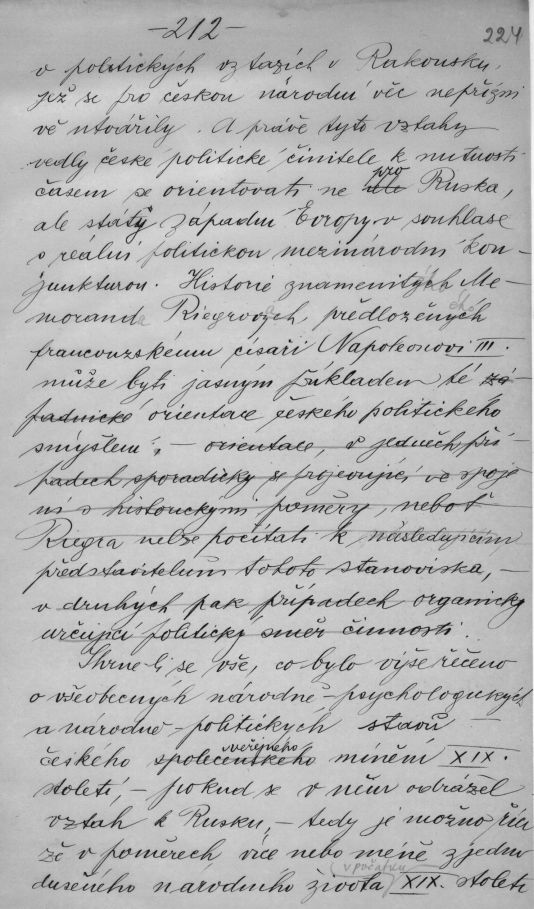 -212-
224
v politických vztazích v Rakousku,
jež se pro českou národní věc nepřízni
vě utvářily. A práve tyto vztahy
vedly české politické činitele k nutnosti
časem se orientovati ne pro Ruska,
ale státy západní Evropy, v souhlase
s reální politickou mezinárodní kon-
junkturou. Historie znamenitých Me-
morand Riegrových, předložených
francouzskému císaři Napoleonovi III.
může byti jasným příkladem té zá-
padnické orientace českého politického
smýšlení, - orientace, v jedněch pří-
padech sporadicky se projevující ve spoje
ní s historickými poměry, neboť
Riegra nelze počítati k následujícím
představitelům tohoto stanoviska, -
v druhých pak případech organicky
určující politický směr činnosti.
Shrne-li se vše, co bylo výše řečeno
o všeobecných národně-psychologických
a národně-politických stavů
českého společenského veřejného mínění XIX.
století, - pokud se v něm odrážel
vztah k Rusku, - tedy je možno říci
že v poměrech více nebo méně zjedno
dušeného národního života (v počátku) XIX. století